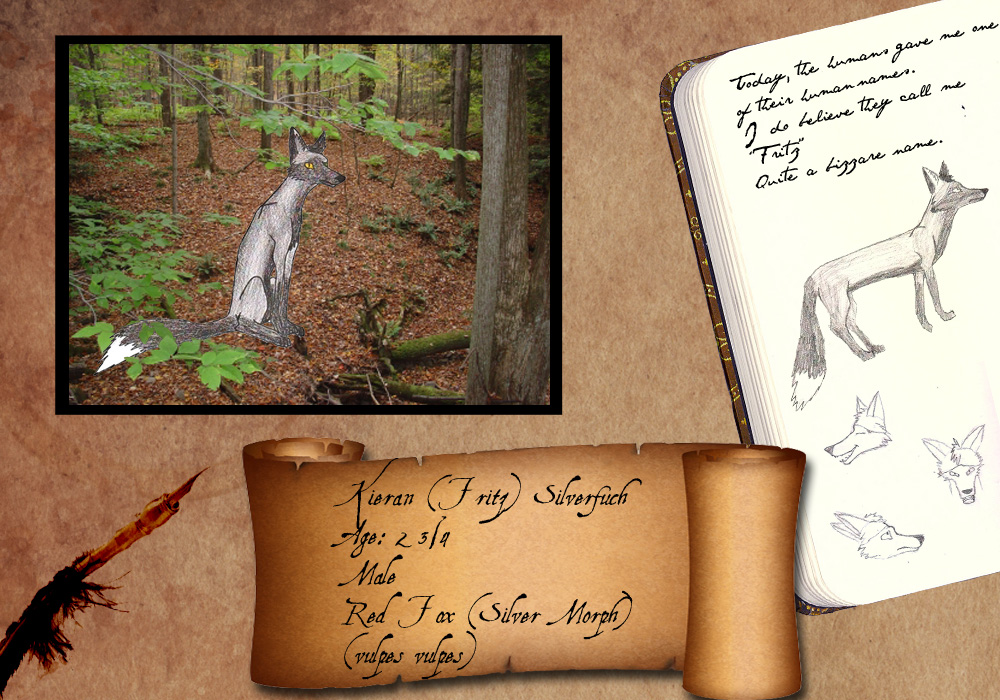 Today, the humans gave me one
of their human names.
I do believe they call me
"Fritz"
Quite a bizzare name.
Kieran (Fritz) Silverfuch
Age: 2 3/4
Male
Red Fox (Silver Morph)
(vulpes vulpes)